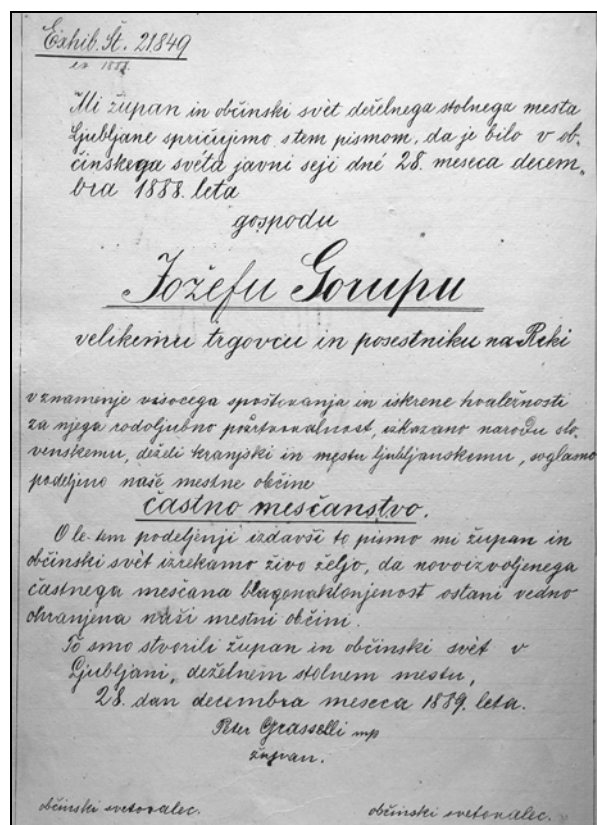 Exhib. Št. 21849
ex 1888.
Mi župan in občinski svèt deželnega stolnega mesta
Ljubljane spričujemo s tem pismom, da je bilo v ob-
činskega svèta javni seji dné 28. meseca decem-
bra 1888. leta
gospodu
Jožefu Gorupu
velikemu trgovcu in posestniku na Reki
v znamenje visocega spoštovanja in iskrene hvaležnosti
za njega rodoljubno požrtvovalnost, izkazano narodu slo-
venskemu, deželi kranjski in mestu ljubljanskemu, soglasno
podeljeno naše mestne občine
častno meščanstvo.
O le-tem podeljenji izdavši to pismo mi župan in
občinski svèt izrekamo živo željo, da novoizvoljenega
častnega meščana blagonaklonjenost ostani vedno
ohranjena naši mestni občini.
To smo stvorili župan in občinski svèt v
Ljubljani, deželnem stolnem mestu,
28. dan decembra meseca 1889. leta.
Peter Grasselli mp
župan.
občinski svetovalec. občinski svetovalec.